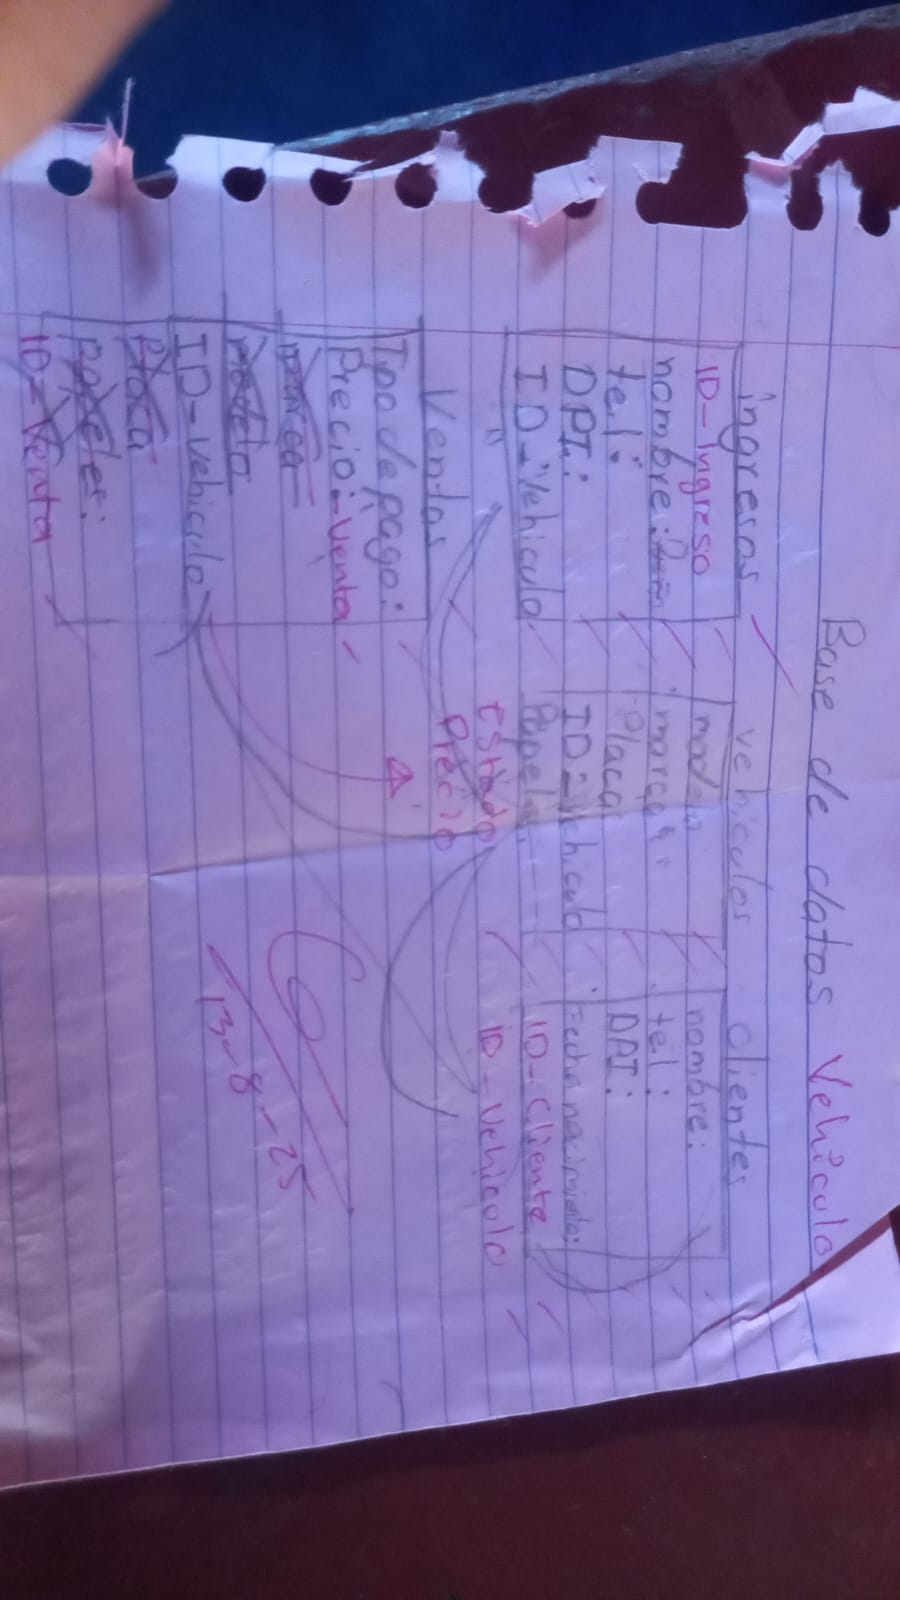 Base de datos Vehiculo
ingresos
ID-Ingreso
nombre:
tel:
DPI:
ID-Vehiculo
vehiculos
mod
marca
Placa
ID-Vehiculo
Papel
Estado
Precio
clientes
nombre:
tel:
DPI:
Fecha
ID-Cliente
ID-Vehiculo
Ventas
Tipo de pago:
Precio-Venta
marca
ID-vehiculo
Placa
ID-Venta
13-8-25